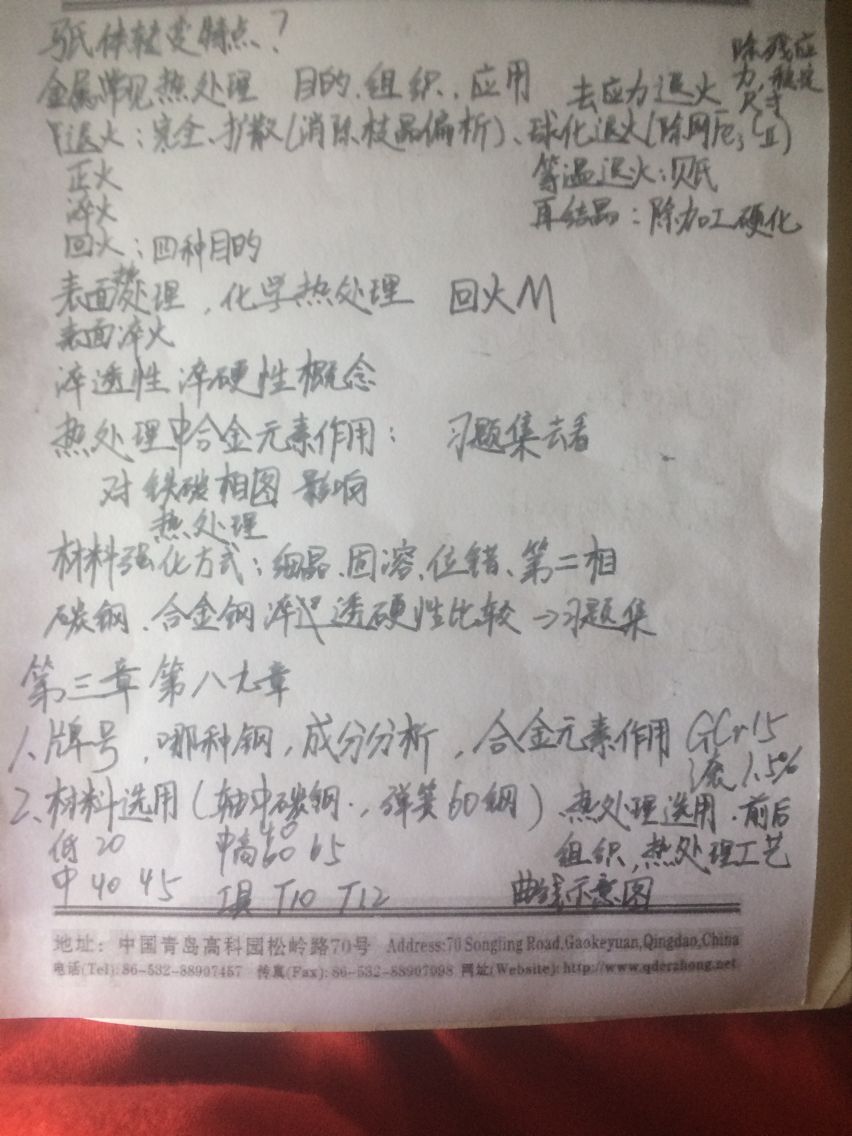 马氏体转变特点？
金属常见热处理 目的、组织、应用 去应力退火 除残应力，稳定尺寸
退火：完全、扩散(消除枝晶偏析)、球化退火(除网Fe3CⅡ)
正火 等温退火：贝氏
淬火 再结晶：除加工硬化
回火：四种目的
表面热处理，化学热处理 回火M
表面淬火
淬透性 淬硬性概念
热处理中合金元素作用： 习题集去看
对 铁碳相图 影响
热处理
材料强化方式：细晶、固溶、位错、第二相
碳钢、合金钢 淬透硬性比较→习题集
第三章 第八九章
1、牌号，哪种钢，成分分析，合金元素作用 GCr15
滚 1.5%
2、材料选用(轴中碳钢，弹簧60钢)、热处理选用、前后
低 20 中高 60 65 组织，热处理工艺
中 40 45 工具 T10 T12 曲线示意图
地址：中国青岛高科园松岭路70号 Address:70 Songling Road,Gaokeyuan,Qingdao,China
电话(Tel):86-532-88907457 传真(Fax):86-532-88907098 网址(Website):http://www.qderzhong.net